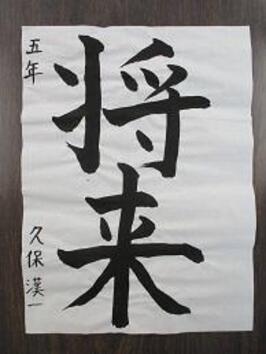 将来
五年
久保漢一